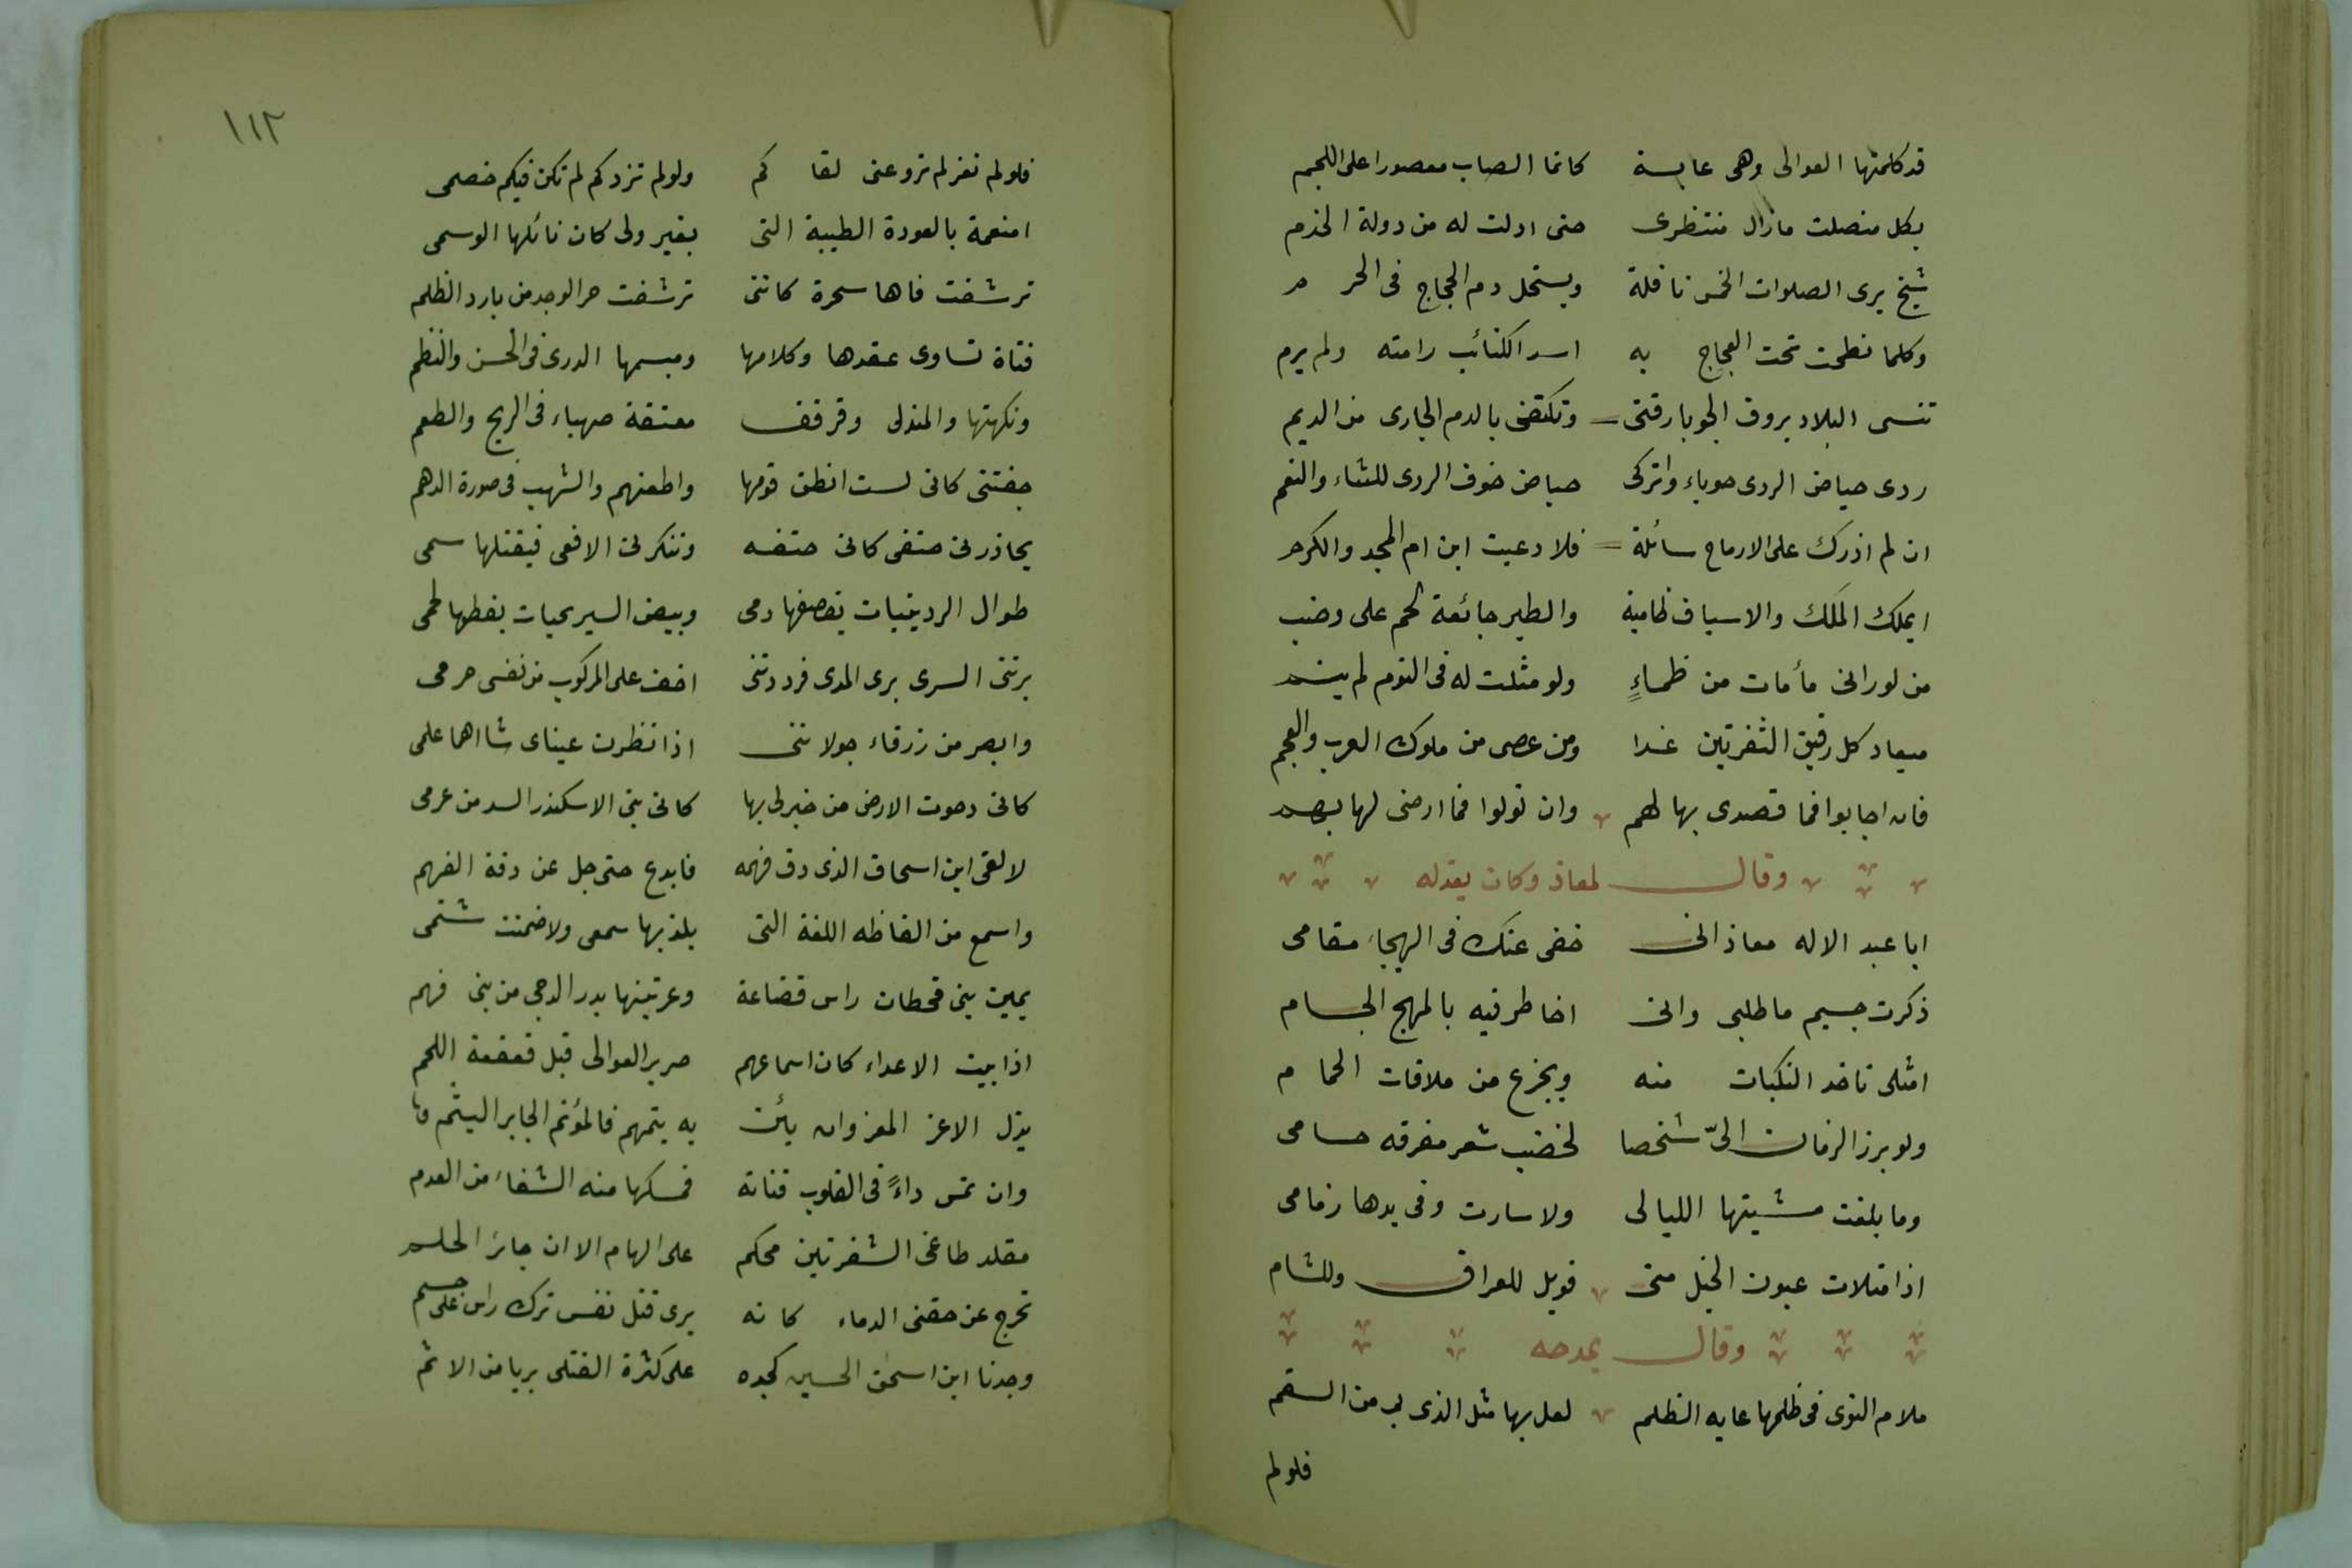 قد كلمتها العوالى وهى عابسة كانما الصاب معصورا على اللجم
بكل منصلت مازال منتظرى حتى ادلت له من دولة الخدم
شيخ يرى الصلوات الخمس نافلة ويستحل دم الحجاج فى الحرم
وكلما نطحت تحت العجاج به اسد الكتائب رامته ولم يرم
تنسى البلاد بروق الجو بارقتى وتكتفى بالدم الجارى من الديم
ردى حياض الردى حوباء واتركى حياض خوف الردى للشاء والنعم
ان لم اذرك على الارماح سائلة فلا دعيت ابن ام المجد والكرم
ايملك الملك والاسياف ظامية والطير جائعة لحم على وضب
من لورانى مأمات من ظماءٍ ولو مثلت له فى النوم لم ينم
ميعاد كل رقيق الشفرتين غدا ومن عصى من ملوك العرب والعجم
فان اجابوا فما قصدى بها لهم وان تولوا فما ارضى لها بهم
وقال لمعاذ وكان يعذله
ابا عبد الاله معاذ انى خفى عنك فى الهيجاء مقامى
ذكرت جسيم ما طلبى وانى اخاطر فيه بالمهج الجسام
امثلى تاخذ النكبات منه ويجزع من ملاقات الحمام
ولو برز الزمان الىّ شخصا لخضب شعر مفرقه حسامى
وما بلغت مشيتها الليالى ولا سارت وفى يدها زمامى
اذا متلات عيون الخيل منى فويل للعراق وللشام
وقال يمدحه
ملام النوى فى ظلمها غاية الظلم لعل بها مثل الذى بى من السقم
فلولم
١١٢
فلولم تغز لم تزو عنى لقاكم ولولم تزدكم لم تكن فيكم خصمى
امنعمة بالعودة الظبية التى بغير ولى كان نائلها الوسمى
ترشفت فاها سحرة كاننى ترشفت حر الوجد من بارد الظلم
فتاة تساوى عقدها وكلامها ومبسمها الدرى فى الحسن والنظم
ونكهتها والمندلى وقرقف معتقة صهباء فى الريح والطعم
جفتنى كانى لست انطق قومها واطعنهم والشهب فى صورة الدهم
يحاذرنى حتفى كانى حتفه وتنكرنى الافعى فيقتلها سمى
طوال الردينيات يقصفها دمى وبيض السيريحيات يقطها لحمى
برتنى السرى برى المدى فرددتنى اخف على المركوب من نفسى جرمى
وابصر من زرقاء جو لاننى اذا نظرت عيناى شااهما علمى
كانى دحوت الارض من خبرلى بها كانى بنى الاسكندر السد من عزمى
لالقى ابن اسحاق الذى دق فهمه فابدع حتى جل عن دقة الفهم
واسمع من الفاظه اللغة التى يلذ بها سمعى ولا ضمنت شتمى
يمين بنى قحطان راس قضاعة وعرنينها بدر الدجى من بنى فهم
اذا بيت الاعداء كان اسماعهم صرير العوالى قبل قعقعة اللجم
يذل الاعز المعز وان يأن به يتمهم فالمؤتم الجابر اليتم
وان تمس داءً فى القلوب قناته فمسكها منه الشفاء من العدم
مقلد طاغى الشفرتين محكم على الهام الا ان جائر الحلم
تحرج عن حقن الدماء كانه يرى قتل نفس ترك راس على جسم
وجدنا ابن اسحق الحسين كجده على كثرة القتلى بريا من الاثم